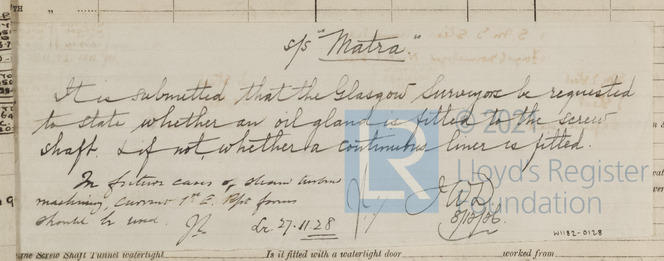 TH
s/s "Matra."
It is submitted that the Glasgow Surveyors be requested
to state whether an oil gland is fitted to the screw
shaft & if not, whether a continuous liner is fitted.
In future cases of steam turbine
machinery, current 1st E. Rpt forms
should be used.
Lr 27.11.28
© 2021
LR
Lloyd's Register
Foundation
W1182-0128
ne Screw Shaft Tunnel watertight
Is it fitted with a watertight door
worked from